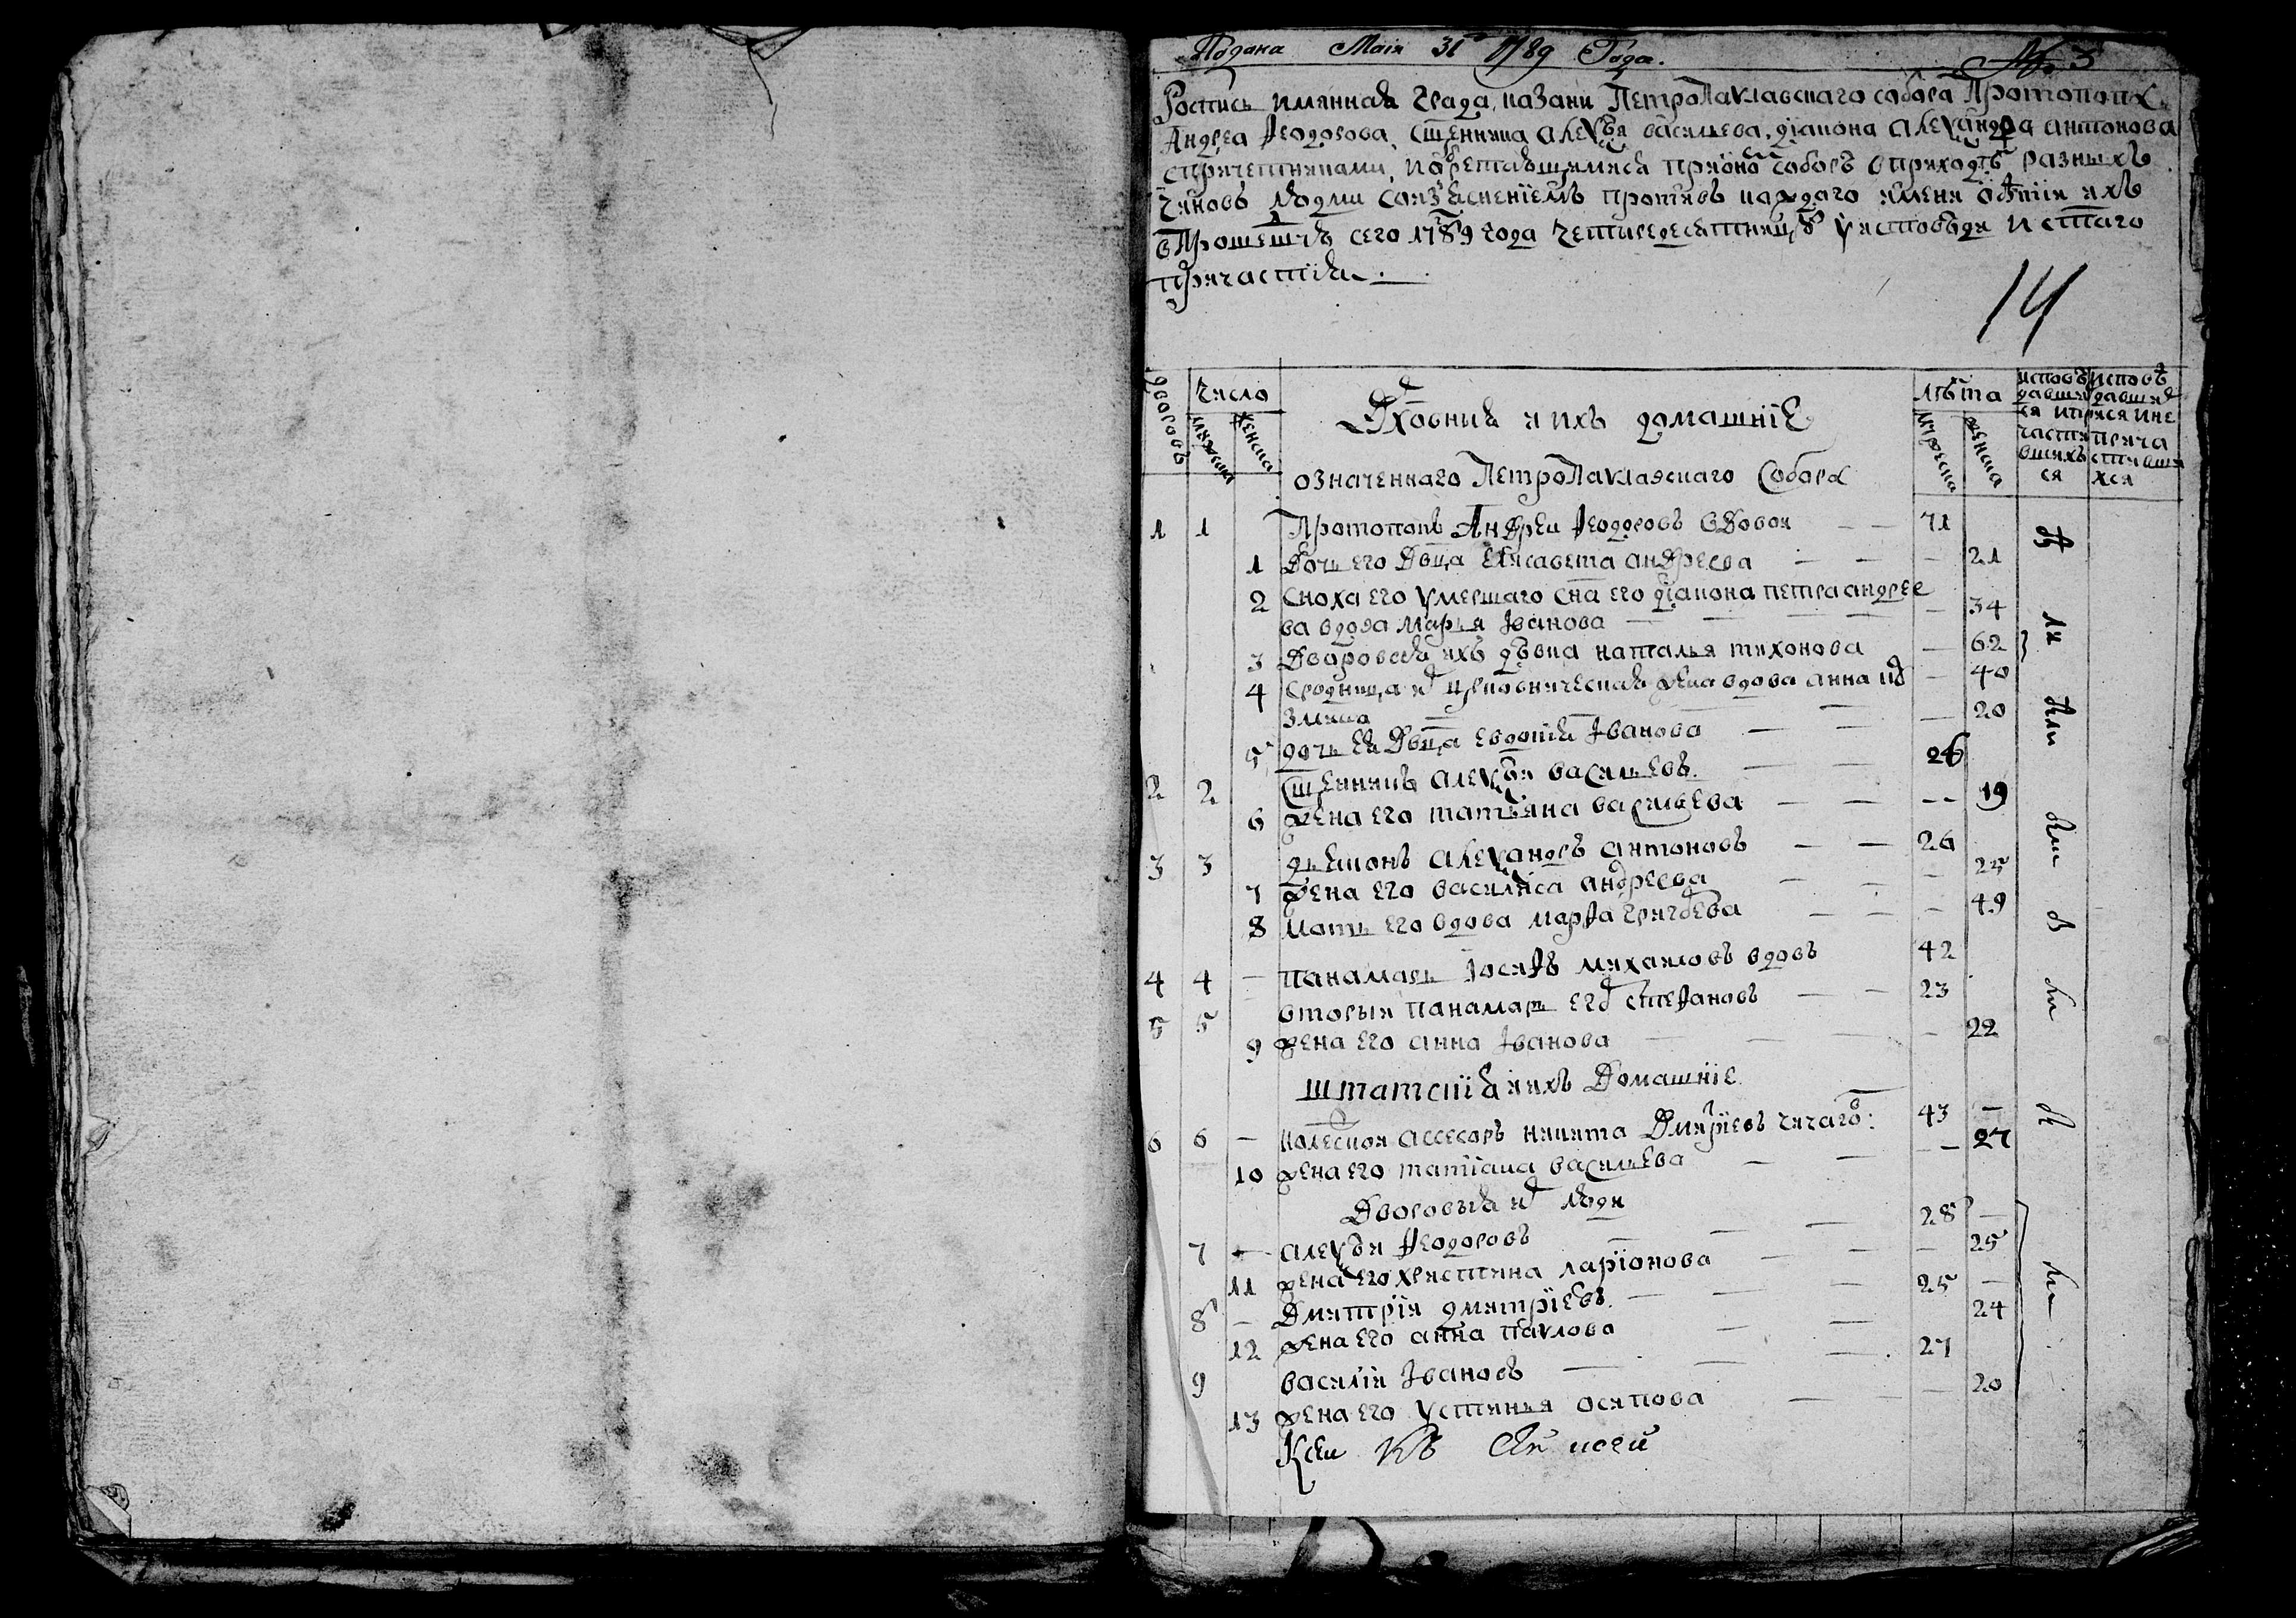 Подана Маія 31 1789 Года. № 3
Роспись имянная града казани ПетроПавлавскаго собора Протопопа
Андрея Ѳеодорова, сщенника алеѯѣя васильева, діакона алеѯандра антонова
спричетниками, иобретающимися прионо соборѣ вприходѣ разныхъ
чиновъ людми соизъясненіемъ противъ каждаго имени обытіи ихъ
впрошедшую сего 1789 года четыредесятницу уисповѣди истаго
причастія.
14
дворовъ
число
мужеска
женска
Дховныя и ихъ домашніе
лѣта
мужеска
женска
исповѣдавшияся ипричастившихся
исповѣдавшияся ине причастившихся
означеннаго ПетроПавлавскаго Собора
1 1 Протопопъ Андреи Ѳеодоровъ вдовои 71
1 Дочь его Двца Елисавета андреева 21
2 Сноха его умершаго сна его діакона петра андрее
ва вдова марья Іванова 34
3 Дворовая ихъ дѣвка наталья тихонова 62
4 Сродница ихъ церковническая жена вдова анна ку
змина 40
5 дочь ея Двца евдокія Іванова 20
2 2 Сщенникъ алеѯѣи васильевъ. 26
6 жена его татьяна васильева 19
3 3 дьяконъ алеѯандръ антоновъ 26
7 жена его василиса андреева 25
8 мать его вдова марѳа григорьева 49
4 4 — панамарь Іосиѳъ михаиловъ вдовъ 42
5 5 вторыи панамарь его стеѳановъ 23
9 жена его анна Іванова 22
штатскія иихъ Домашніе
6 6 — колескои ассесоръ никита Дмитріевъ чичаго: 43 —
10 жена его татіана васильева 27
Дворовыя их люди
7 — алеѯѣи Ѳеодоровъ 28 —
11 жена его христина ларіонова 25
8 — Дмитріи дмитріевъ. 25 —
12 жена его анна павлова 24
9 василіи Івановъ 27
13 жена его устинья осипова 20